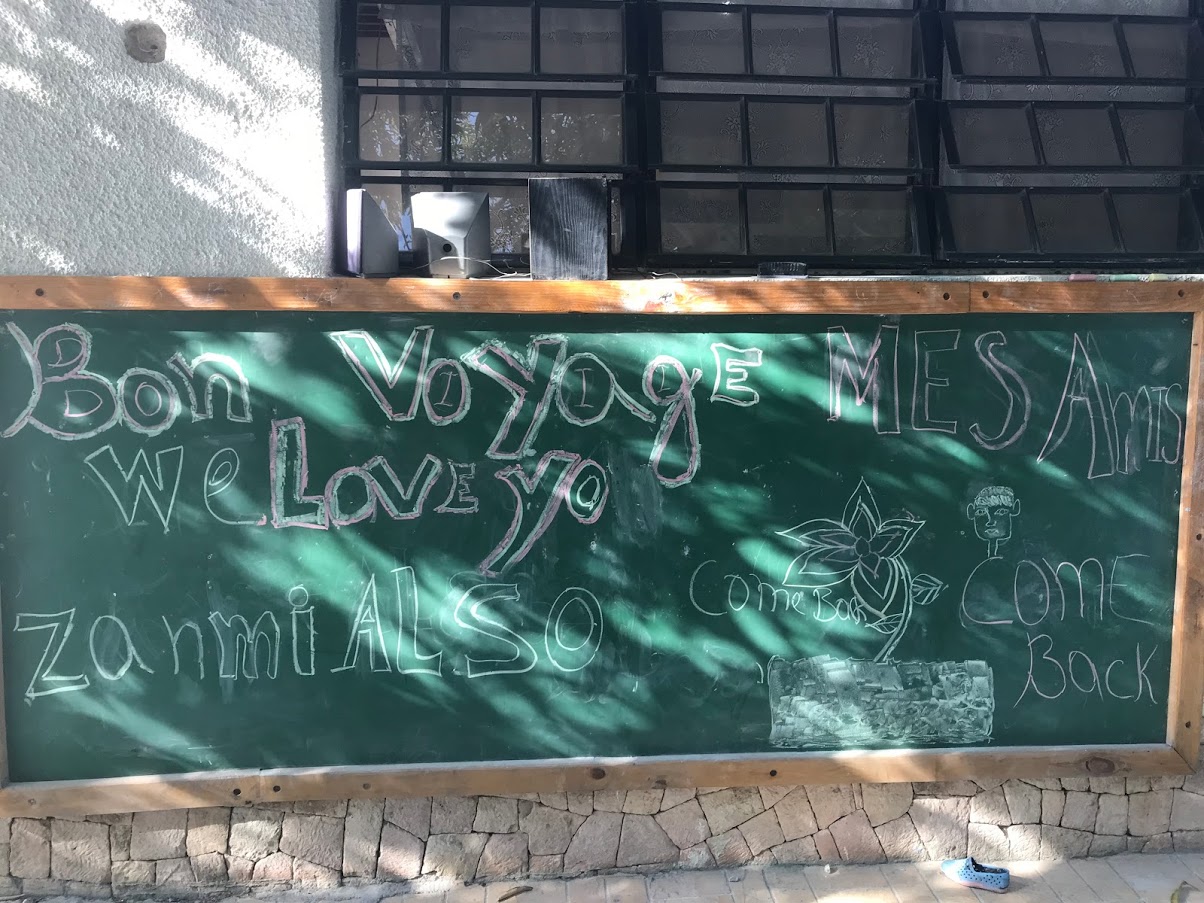 Bon VoYagE MES AmIS
We Love yo
zanmi ALSO
Come Back
COME
Back